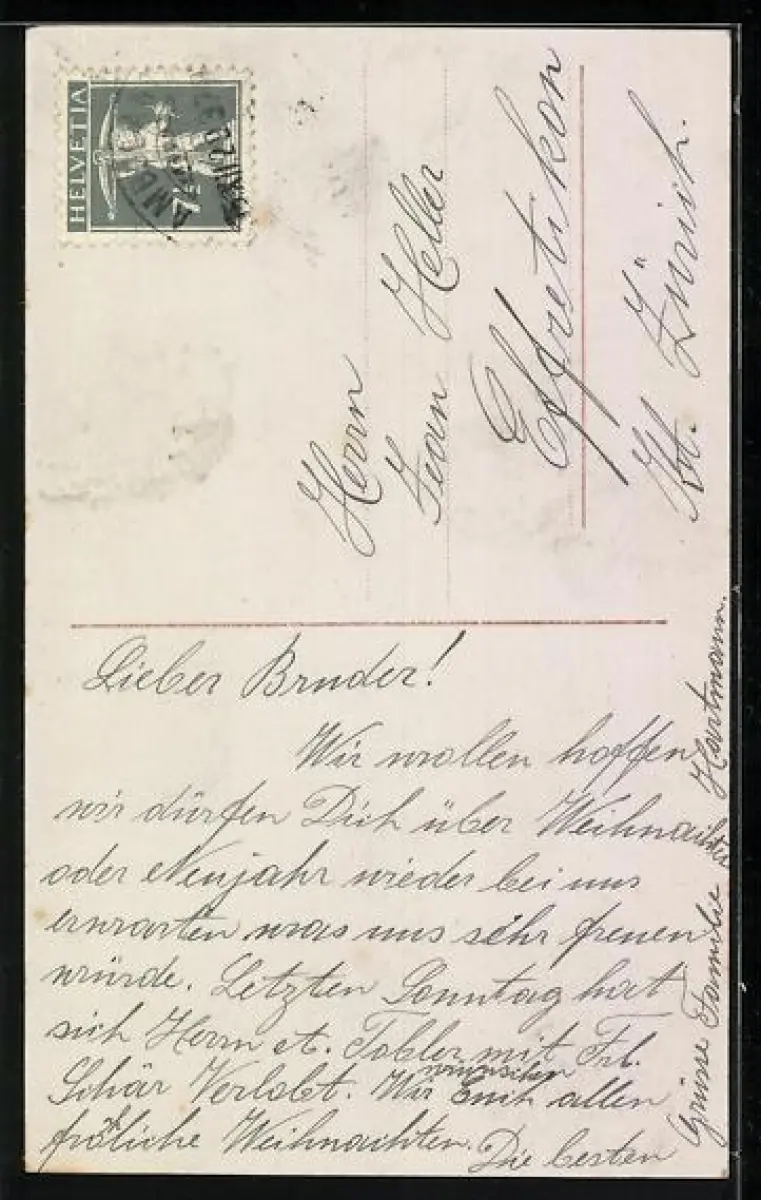 HELVETIA
7½
AMB
Herrn
Jean Heller
Effretikon
Kt. Zürich.
Lieber Bruder!
Wir wollen hoffen
wir dürfen Dich über Weihnachten
oder Neujahr wieder bei uns
erwarten was uns sehr freuen
würde. Letzten Sonntag hat
sich Herrn A. Tobler mit Frl.
Schär Verlobt. Wir wünschen Euch allen
fröhliche Weihnachten. Die besten
Grüsse Familie Hartmann.